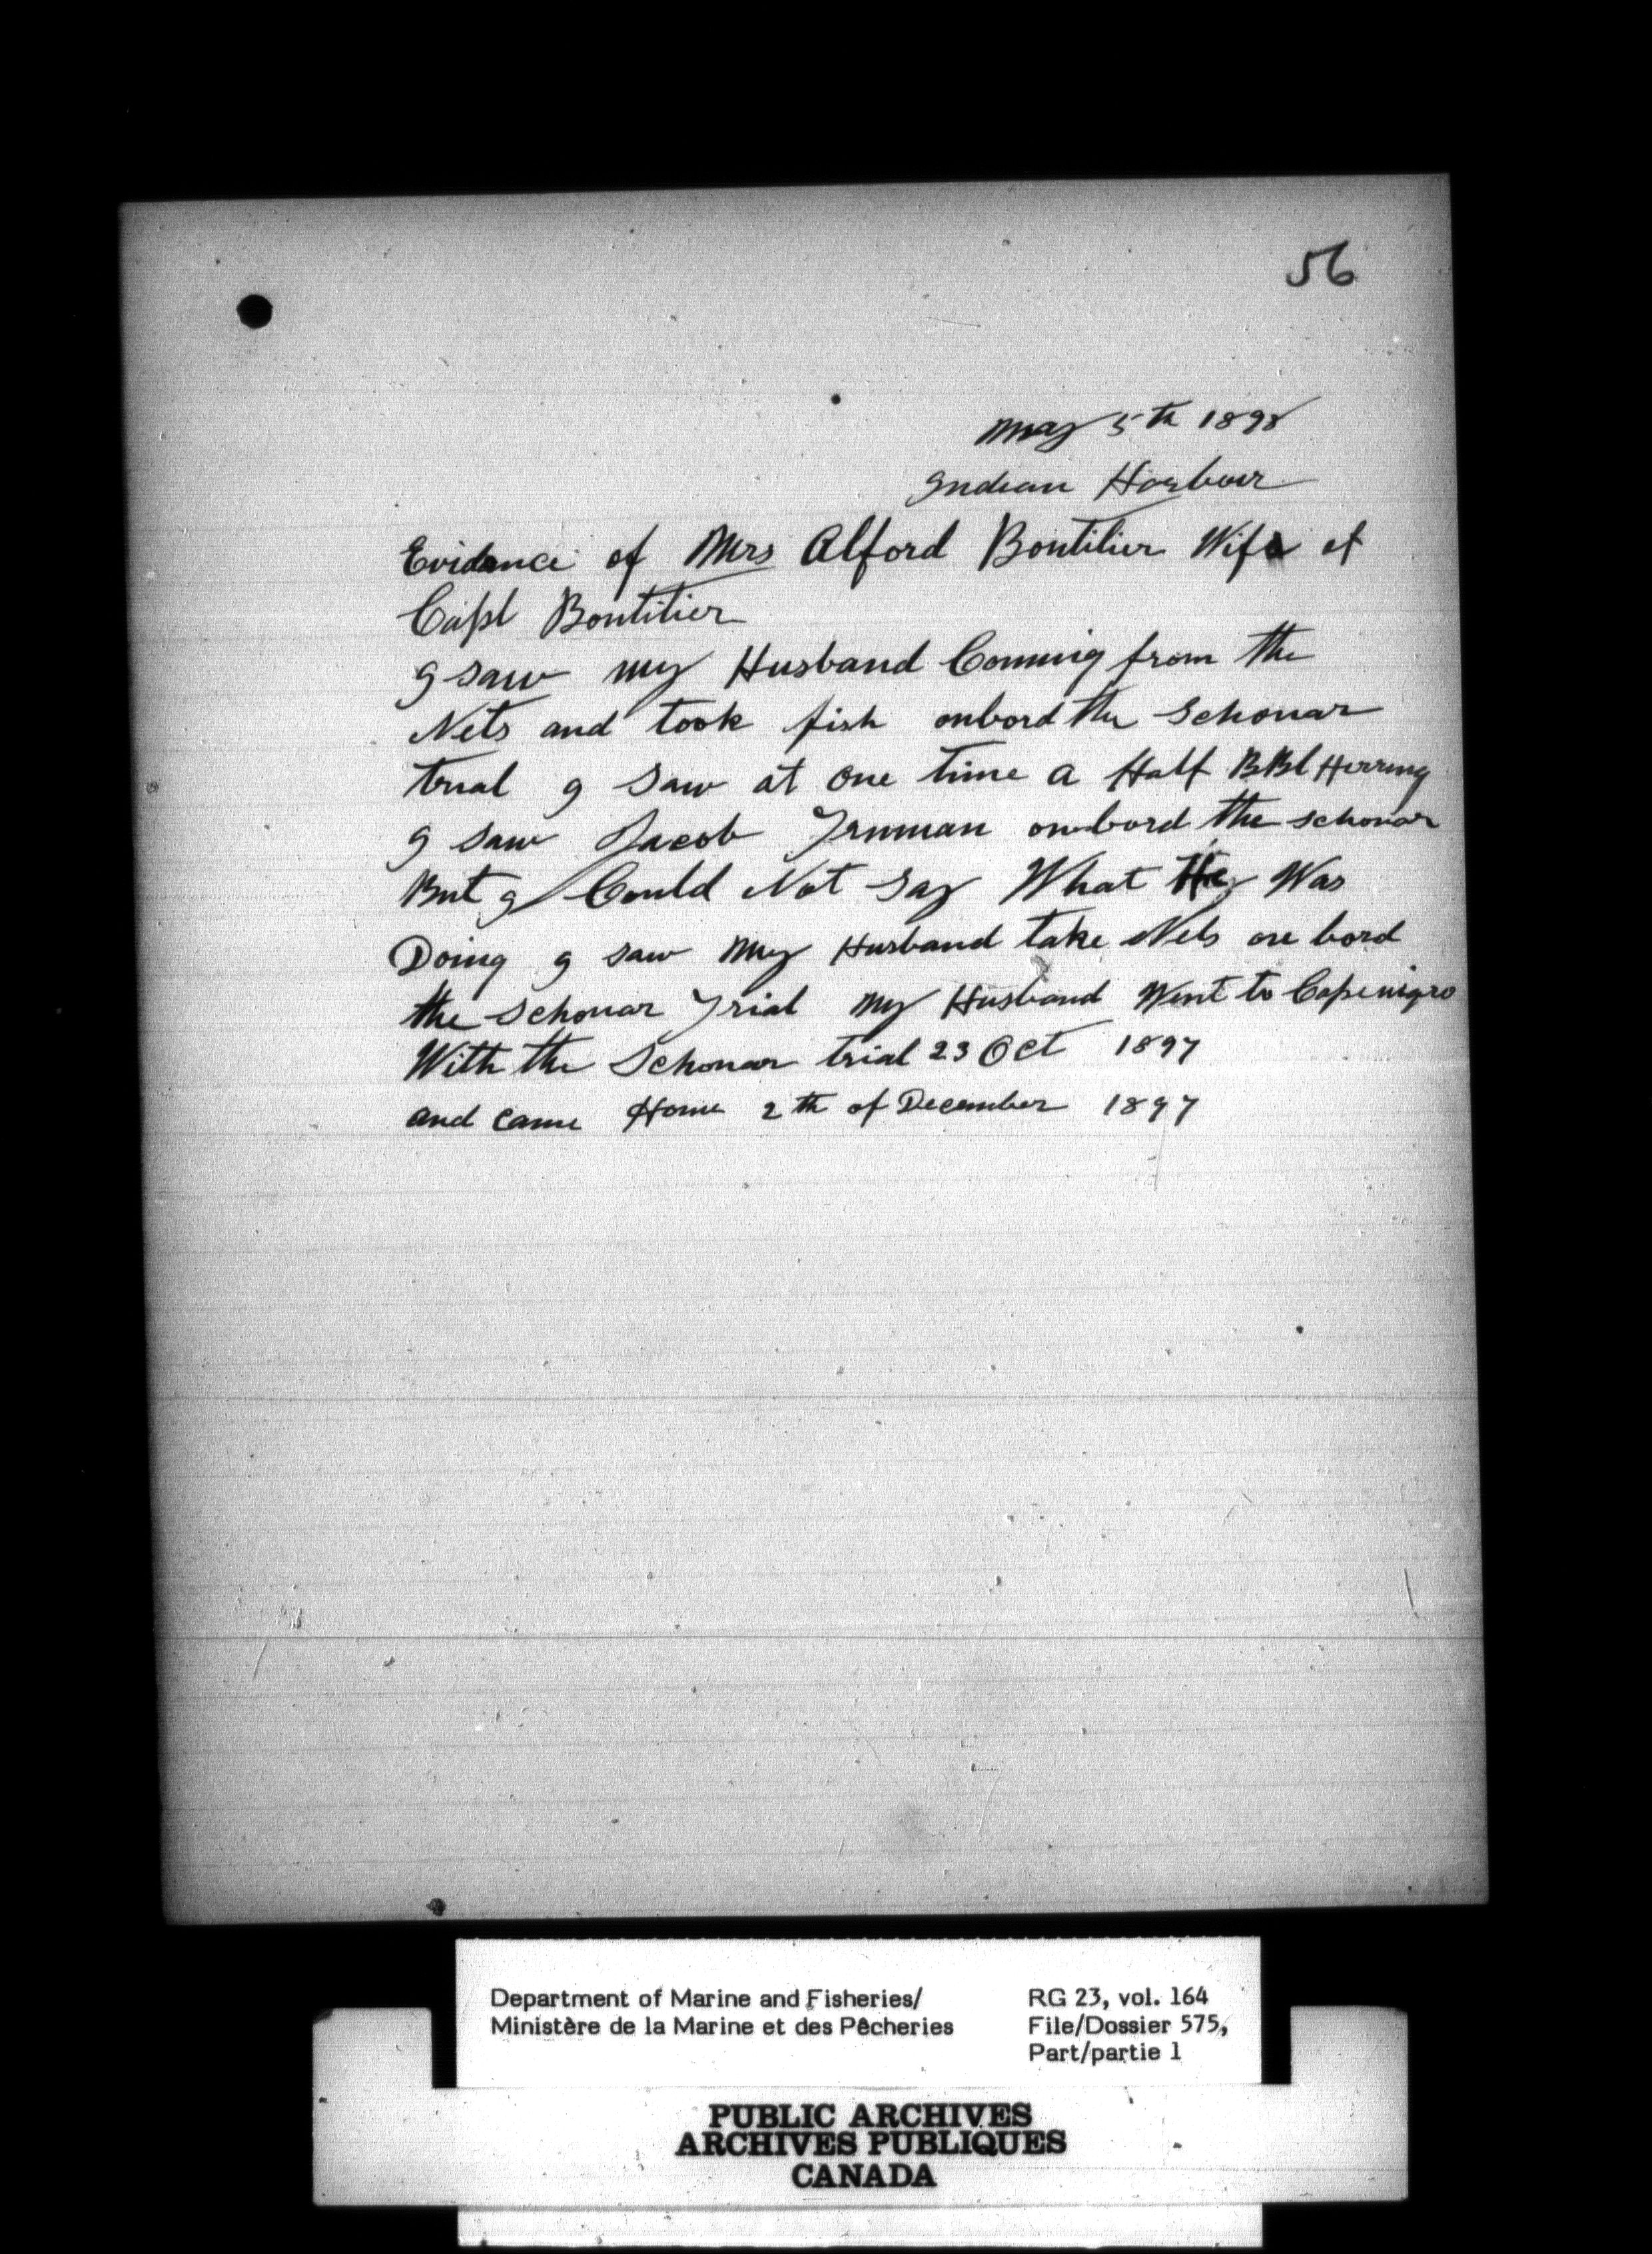 56
May 5th 1898
Indian Harbour
Evidence of Mrs Alford Boutilier Wife of
Capt Boutilier
I saw my Husband Comming from the
Nets and took fish onbord the Schonar
trial I saw at one time a Half BBl Herring
I saw Jacob Truman onbord the schonar
But I Could Not say What He Was
Doing I saw my Husband take Nets one bord
the Schonar Trial My Husband Went to Capenigro
With the Schonar trial 23 Oct 1897
and came Home 2th of December 1897
Department of Marine and Fisheries/
Ministère de la Marine et des Pêcheries
RG 23, vol. 164
File/Dossier 575,
Part/partie 1
PUBLIC ARCHIVES
ARCHIVES PUBLIQUES
CANADA